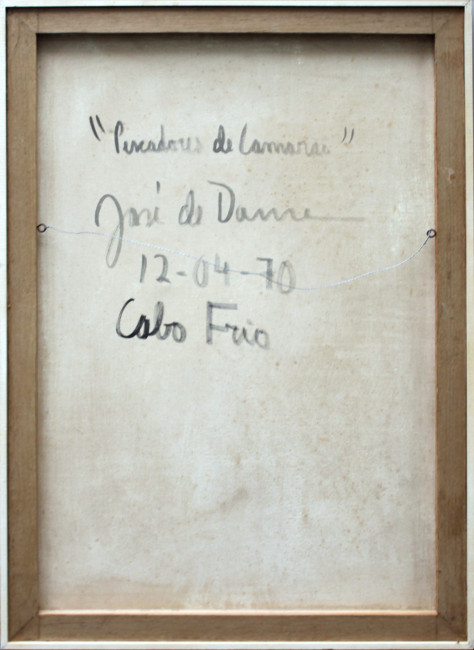 "Pescadores de Camarão"
José de Dome
12-04-70
Cabo Frio